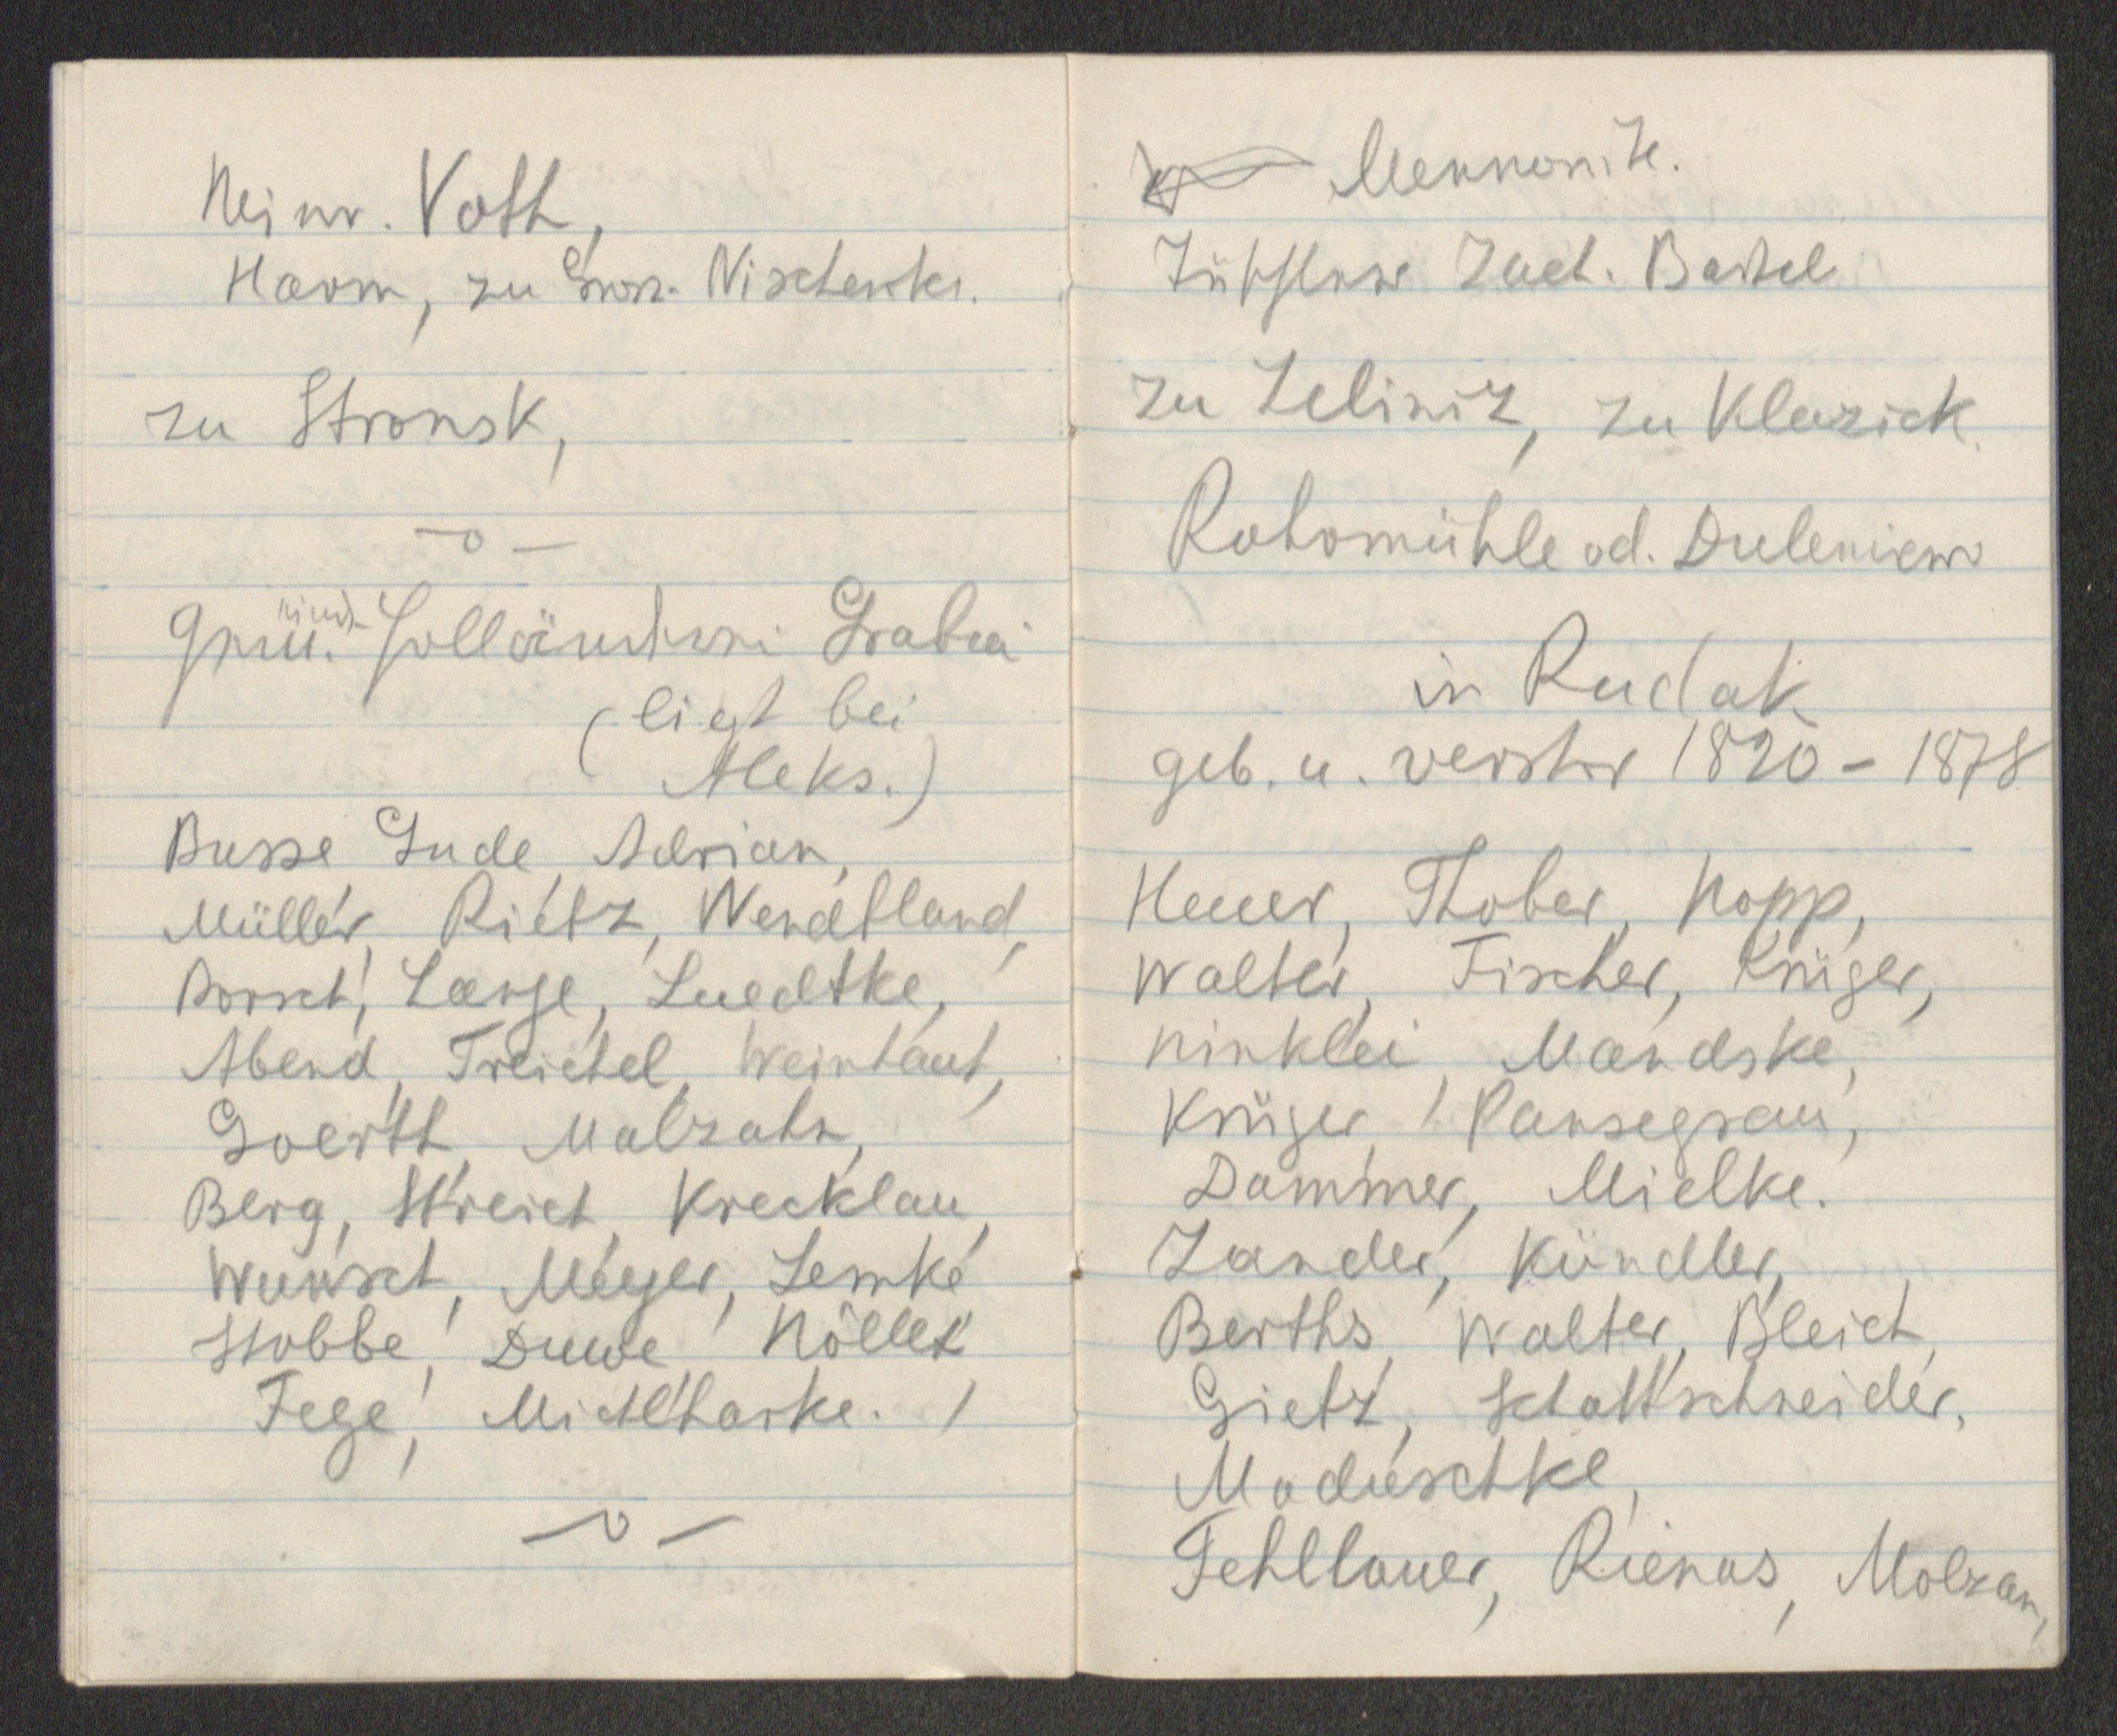 Heinr. Voth,
Harm, zu Gross. Nischenke.
zu Stronsk,
— o —
Holländerei Grabia
(liegt bei
Aleks.)
Busse, Gude, Adrian,
Müller, Rietz, Wendtland,
Borsch, Lange, Luedtke,
Abend, Treichel, Weinhaut,
Goerth, Malzahn,
Berg, Streich, Krecklau,
Wunsch, Meyer, Lemke
Stobbe, Duwe, Nöllek
Fege, Michlharke.
— o —
Mennonite.
Zach. Bartel
zu Zeliniz, zu Kluzick.
Rohrmühle od. Duleniewo
in Rudak
geb. u. verstor 1820 - 1878
Heuer, Thober, Hopp,
Walter, Fischer, Krüger,
Ninklei, Mandske,
Krüger, Pansegrau,
Dammer, Mielke.
Zander, Kündler,
Berths, Walter, Bleich,
Gietz, Schattschneider,
Maduschke,
Fehllauer, Rienas, Molzan,